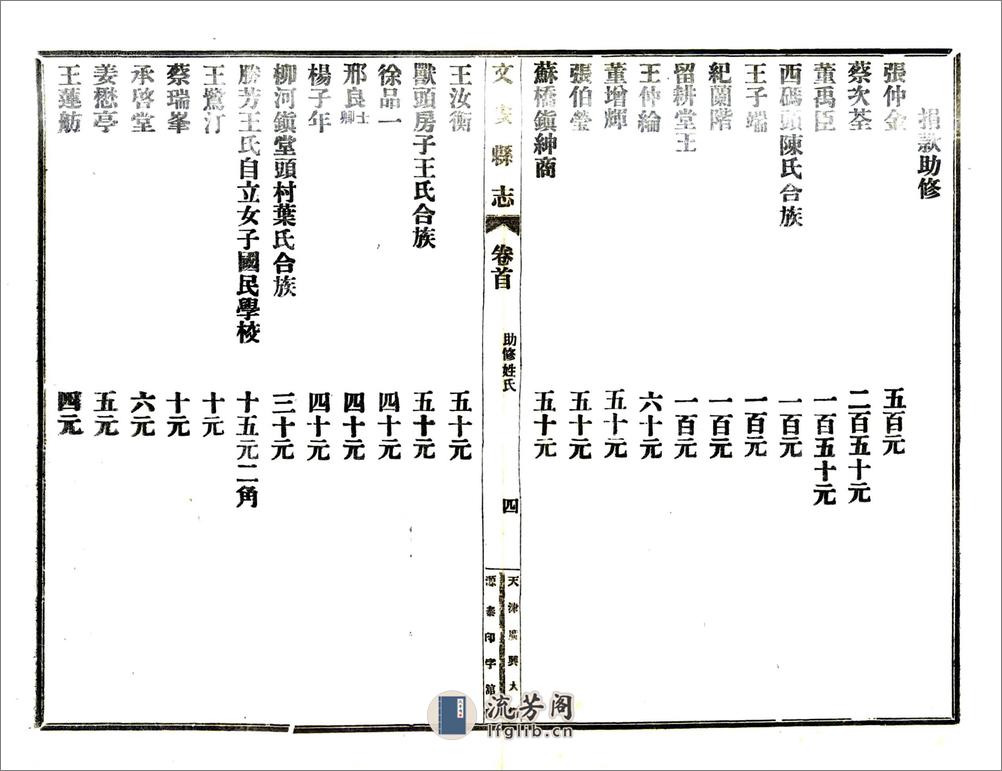 捐款助修
張仲金 五百元
蔡次荃 二百五十元
董禹臣 一百五十元
西碼頭陳氏合族 一百元
王子端 一百元
紀蘭階 一百元
留耕堂王 一百元
王仲綸 六十元
董增輝 五十元
張伯瑩 五十元
蘇橋鎭紳商 五十元
文安縣志 卷首 助修姓氏 四
天津廣興大
源泰印字館
王汝衡 五十元
獸頭房子王氏合族 五十元
徐品一 四十元
邢良士卿 四十元
楊子年 四十元
柳河鎭堂頭村葉氏合族 三十元
勝芳王氏自立女子國民學校 十五元二角
王鷺汀 十元
蔡瑞峯 十元
承啓堂 六元
姜懋亭 五元
王蓮舫 四元
流芳阁
lfglib.cn